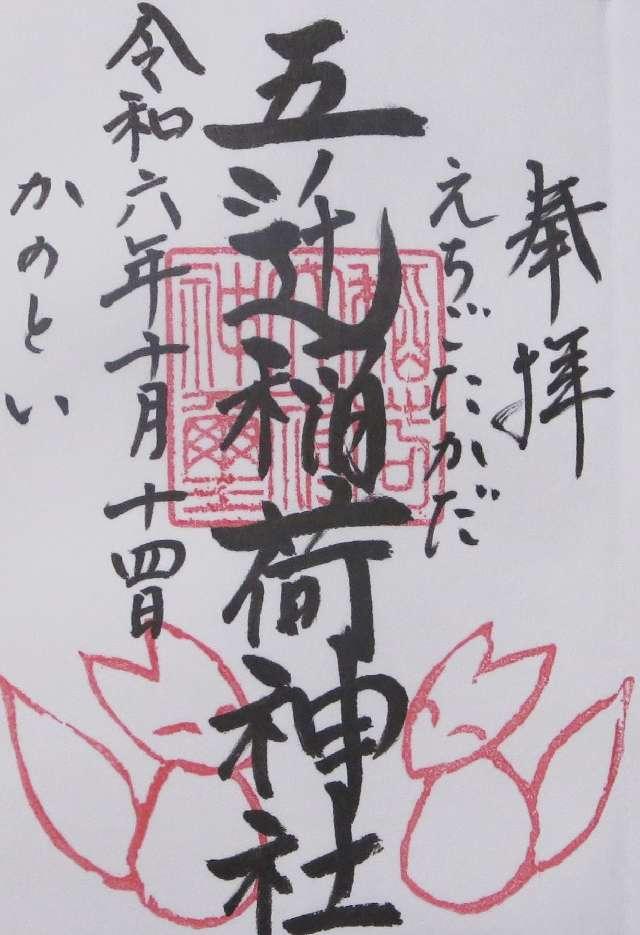 奉拝
えちごたかだ
五辻稲荷神社
令和六年十月十四日
かのとい